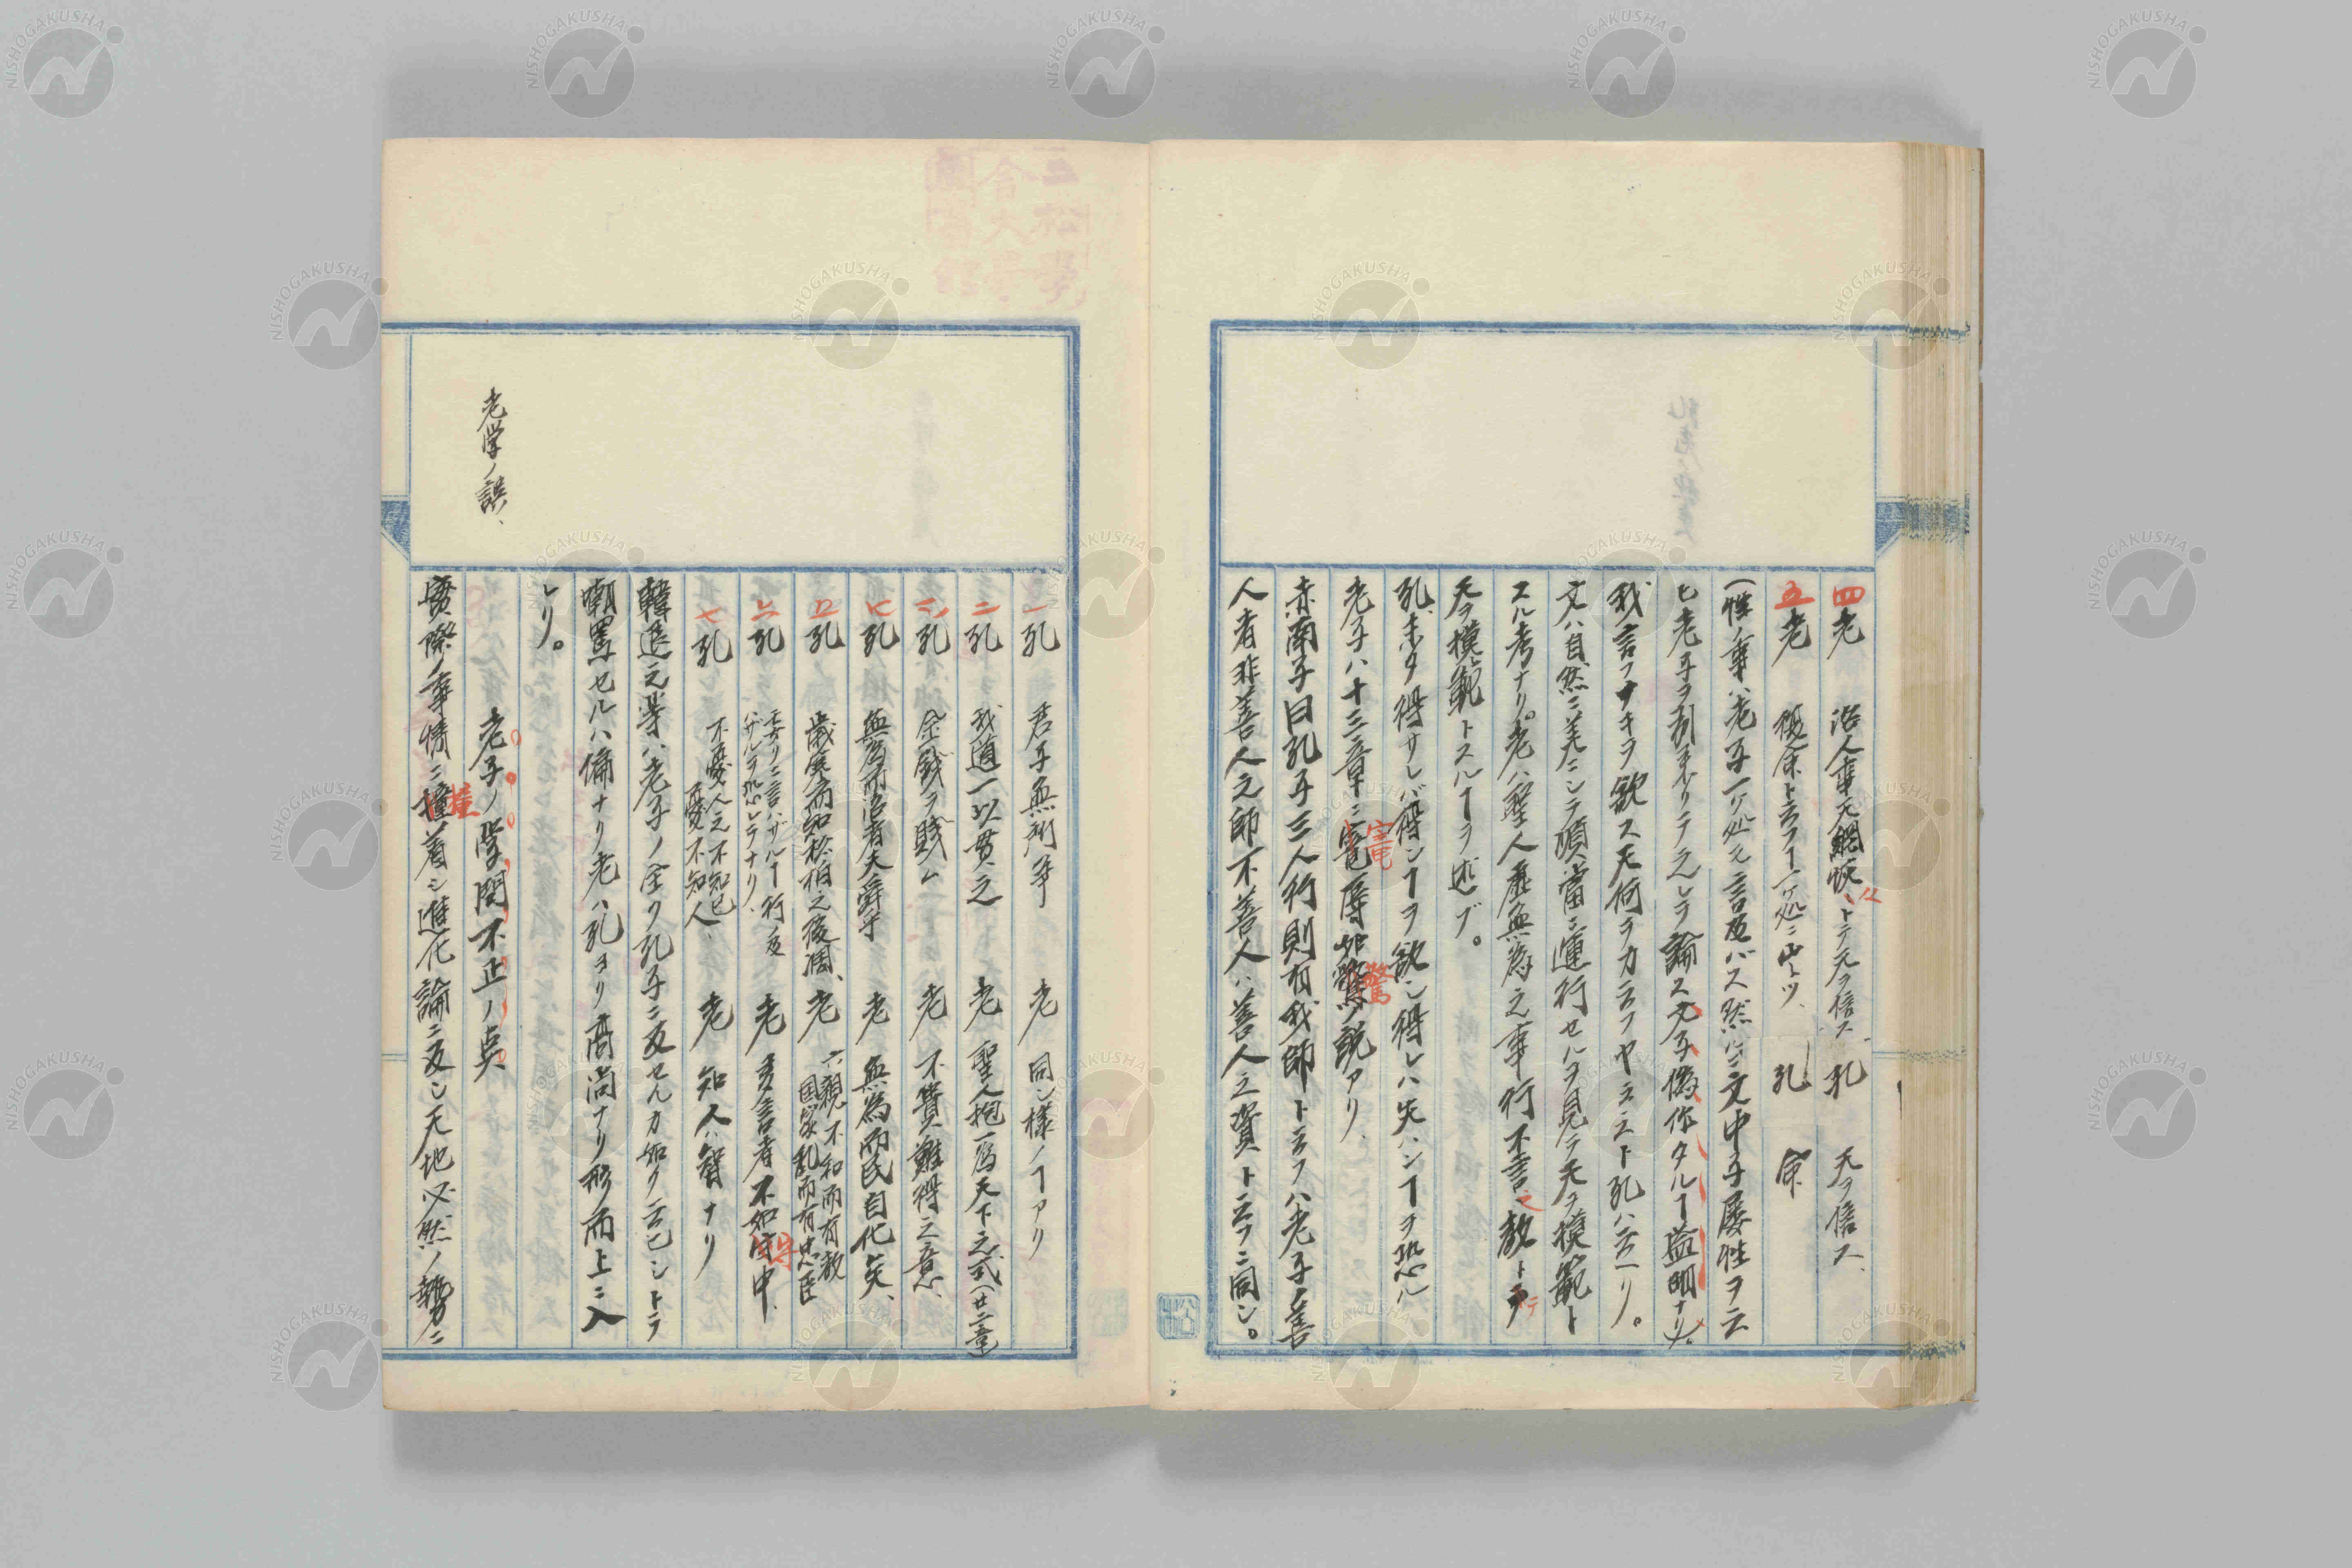 四老 治人事天網恢〻トテ天ヲ信ス 孔 天ヲ信ス、
五老 復命ト云フヿ一ケ処ニ出ヅ、 孔 命
(性ノ事ハ老子一ケ処モ言及バス然ルニ文中子屡性ヲ云
ヒ老子ヲ引来リテ之レヲ論ス文子偽作タルヿ益明ナリ)。
我言フナキヲ欲ス天何ヲカ云フヤ云云ト孔ハ云ヘリ。
天ハ自然ニ美ニシテ順當ニ運行セルヲ見テ天ヲ模範ト
スル考ナリ。老ハ聖人處無為之事行不言之教トテ
天ヲ模範トスルヿヲ述ブ。
孔、未タ得サレバ得ンヿヲ欲シ得レハ失ハンヿヲ恐ル
老子ハ十三章ニ寵辱如驚ノ説アリ、
亦南子曰孔子三人行則有我師ト云フハ老子ノ善
人者非善人之師不善人ハ善人之資ト云フニ同シ。
一孔 君子無所争 老 同シ様ノヿアリ
二孔 我道一以貫之 老 聖人抱一為天下之式(廿二章
三孔 金戔ヲ賤ム 老 不貴難得之意、
孔 無為而治者夫舜乎 老 無為而民自化矣、
孔 歳寒而知松柏之後凋、 老 六親不和而有教 国家乱而有忠臣
孔 妄リニ言ハザルヿ行ノ及ハザルヲ恐レテナリ、 老 多言者不如守中、
七孔 不憂人之不知己憂不知人、 老 知人ハ智ナリ
韓退之等ハ老子ノ全ク孔子ニ反セルカ如ク云己シトテ
嘲罵セルハ偏ナリ老ハ孔ヨリ高尚ナリ形而上ニ入
レリ。
老学ノ誤、
老子ノ学問不正ノ点
實際ノ事情ニ撞着シ進化論ニ反シ天地必然ノ勢力ニ